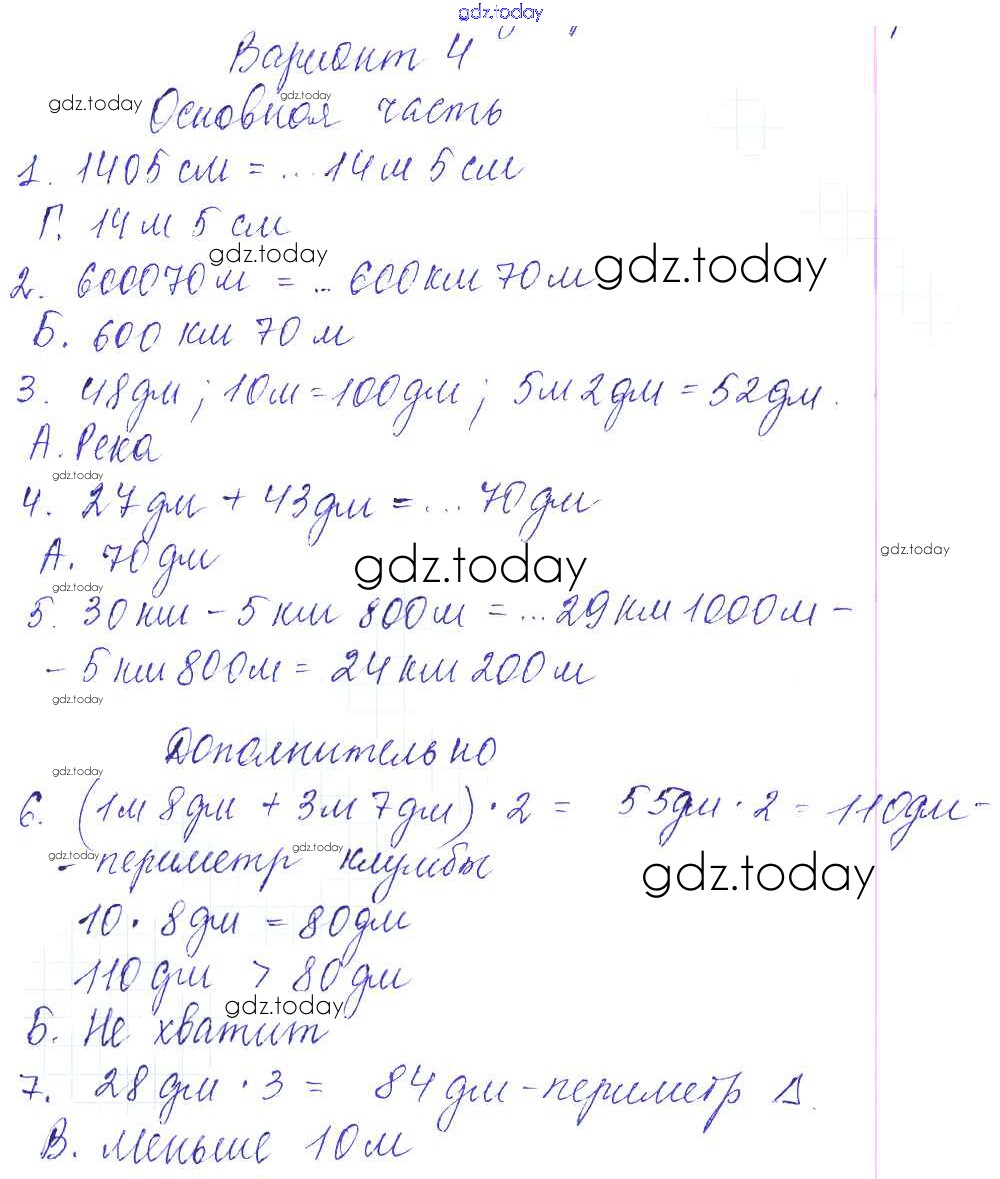 gdz.today
Вариант 4
gdz.today
gdz.today
Основная часть
1. 1405 см = ... 14 м 5 см
Г. 14 м 5 см
gdz.today
gdz.today
2. 600070 м = ... 600 км 70 м
Б. 600 км 70 м
3. 48 дм ; 10 м = 100 дм ; 5 м 2 дм = 52 дм.
А. Река
gdz.today
4. 27 дм + 43 дм = ... 70 дм
А. 70 дм
gdz.today
gdz.today
gdz.today
5. 30 км - 5 км 800 м = ... 29 км 1000 м -
- 5 км 800 м = 24 км 200 м
gdz.today
Дополнительно
gdz.today
6. (1 м 8 дм + 3 м 7 дм) · 2 = 55 дм · 2 = 110 дм -
- периметр клумбы
gdz.today
gdz.today
gdz.today
10 · 8 дм = 80 дм
110 дм > 80 дм
gdz.today
Б. Не хватит
7. 28 дм · 3 = 84 дм - периметр Δ.
В. Меньше 10 м